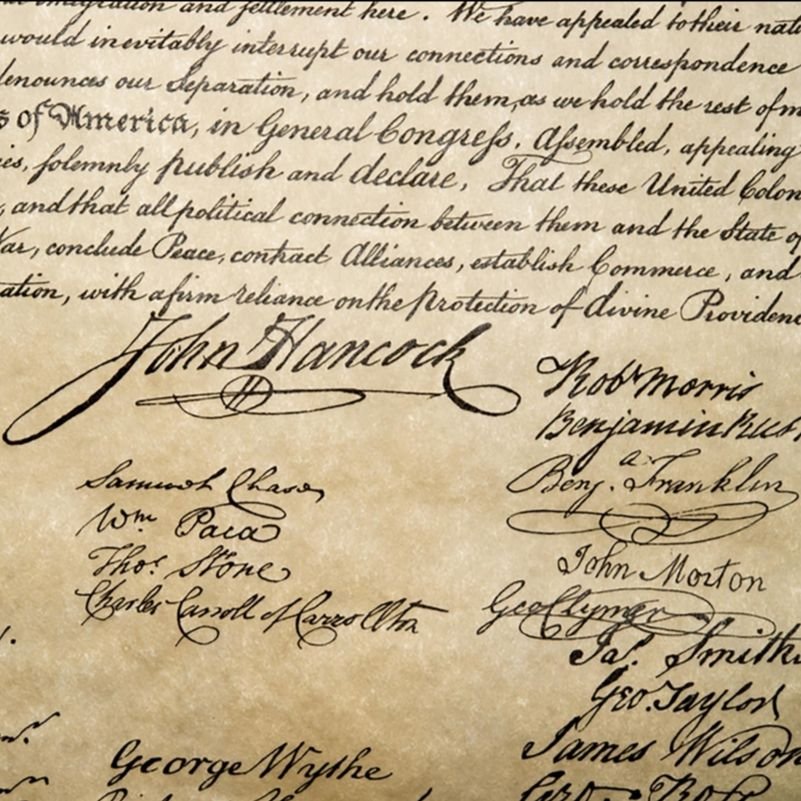 emigration and settlement here. We have appealed to their
would inevitably interrupt our connections and correspondence
denounces our Separation, and hold them, as we hold the rest of
of America, in General Congress, Assembled, appealing
solemnly publish and declare, That these United Colon
, and that all political connection between them and the State of
War, conclude Peace, contract Alliances, establish Commerce, and
ation, with a firm reliance on the Protection of divine Providenc
John Hancock
Robt Morris
Benjamin Rush
Benja. Franklin
Samuel Chase
Wm Paca
Thos. Stone
Charles Carroll of Carrollton
John Morton
Geo Clymer
Jas. Smith
Geo. Taylor
James Wilson
George Wythe
Geo. Ross